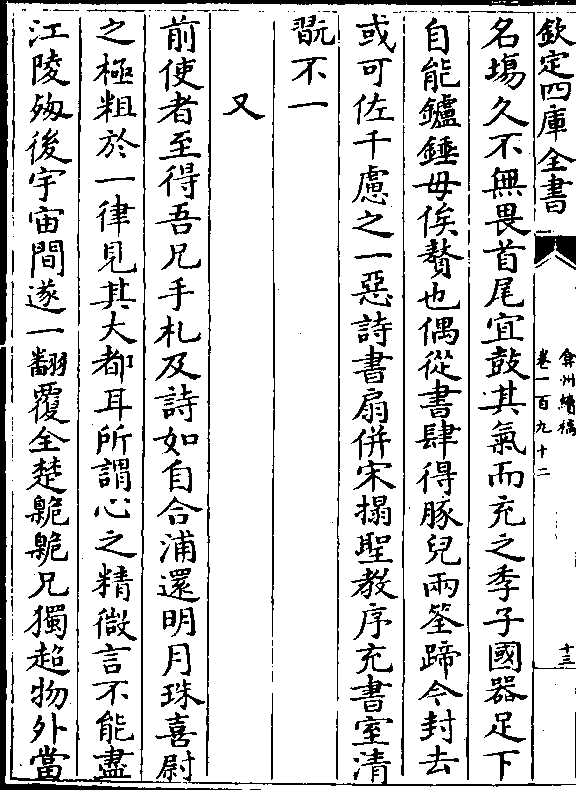 欽定四庫全書
弇州續稿
卷一百九十二
十三
名塲久不無畏首尾宜鼓其氣而充之季子國器足下
自能鑪錘毋俟贅也偶從書肆得豚兒兩筌蹄今封去
或可佐千慮之一惡詩書扇併宋搨聖教序充書室清
翫不一
又
前使者至得吾兄手札及詩如自合浦還明月珠喜尉
之極粗於一律見其大都耳所謂心之精微言不能盡
江陵殁後宇宙間遂一翻覆全楚臲臲兄獨超物外當